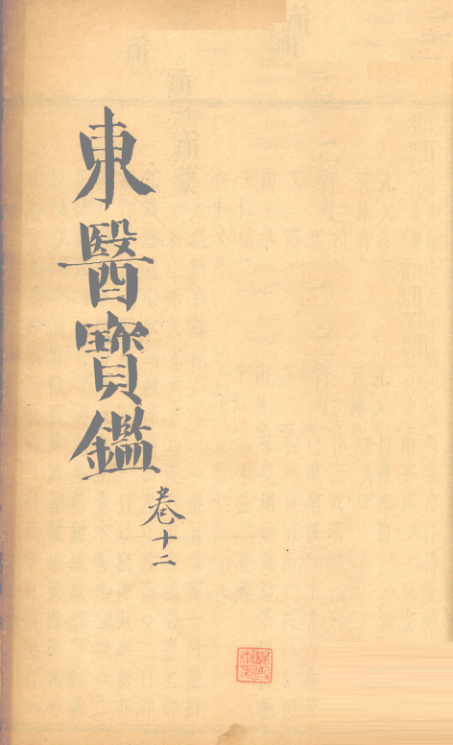 東醫寶鑑
卷十二